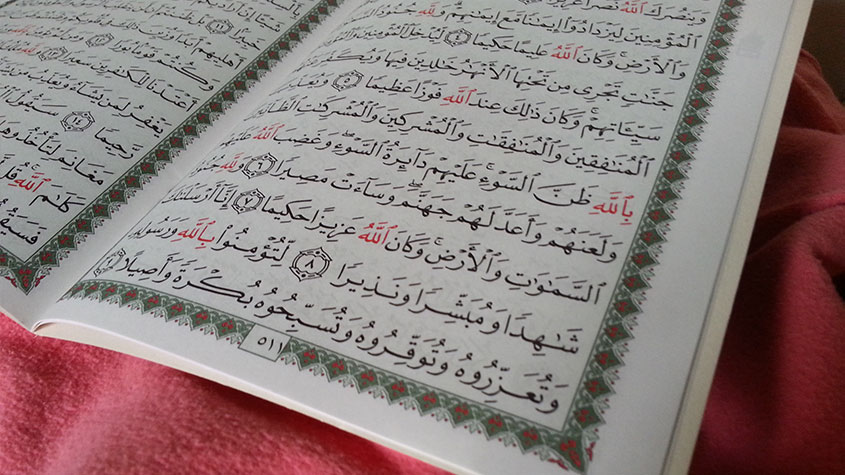 وَيَنصُرَكَ ٱللَّهُ نَصْرًا
ٱلْمُؤْمِنِينَ لِيَزْدَادُوٓا۟ إِيمَٰنًا مَّعَ إِيمَٰنِهِمْ ۗ وَلِلَّهِ جُنُودُ
وَٱلْأَرْضِ ۚ وَكَانَ ٱللَّهُ عَلِيمًا حَكِيمًا ٤ لِّيُدْخِلَ ٱلْمُؤْمِنِينَ
جَنَّٰتٍ تَجْرِى مِن تَحْتِهَا ٱلْأَنْهَٰرُ خَٰلِدِينَ فِيهَا وَيُكَفِّرَ
سَيِّـَٔاتِهِمْ ۚ وَكَانَ ذَٰلِكَ عِندَ ٱللَّهِ فَوْزًا عَظِيمًا ٥ وَيُعَذِّبَ
ٱلْمُنَٰفِقِينَ وَٱلْمُنَٰفِقَٰتِ وَٱلْمُشْرِكِينَ وَٱلْمُشْرِكَٰتِ ٱلظَّآنِّينَ
بِٱللَّهِ ظَنَّ ٱلسَّوْءِ ۚ عَلَيْهِمْ دَآئِرَةُ ٱلسَّوْءِ ۖ وَغَضِبَ ٱللَّهُ عَلَيْهِمْ
وَلَعَنَهُمْ وَأَعَدَّ لَهُمْ جَهَنَّمَ ۖ وَسَآءَتْ مَصِيرًا ٦ وَلِلَّهِ جُنُودُ
ٱلسَّمَٰوَٰتِ وَٱلْأَرْضِ ۚ وَكَانَ ٱللَّهُ عَزِيزًا حَكِيمًا ٧ إِنَّآ أَرْسَلْنَٰكَ
شَٰهِدًا وَمُبَشِّرًا وَنَذِيرًا ٨ لِّتُؤْمِنُوا۟ بِٱللَّهِ وَرَسُولِهِۦ
وَتُعَزِّرُوهُ وَتُوَقِّرُوهُ وَتُسَبِّحُوهُ بُكْرَةً وَأَصِيلًا ٩
٥١١
أَهْلِيهِمْ
وَكُنتُمْ قَوْمًۢا بُورًا ١٢
أَعْتَدْنَا لِلْكَٰفِرِينَ سَعِيرًا ١٣
يَغْفِرُ لِمَن يَشَآءُ وَيُعَذِّبُ مَن
رَّحِيمًا ١٤ سَيَقُولُ
مَغَانِمَ لِتَأْخُذُوهَا
كَلَٰمَ ٱللَّهِ ۚ قُل